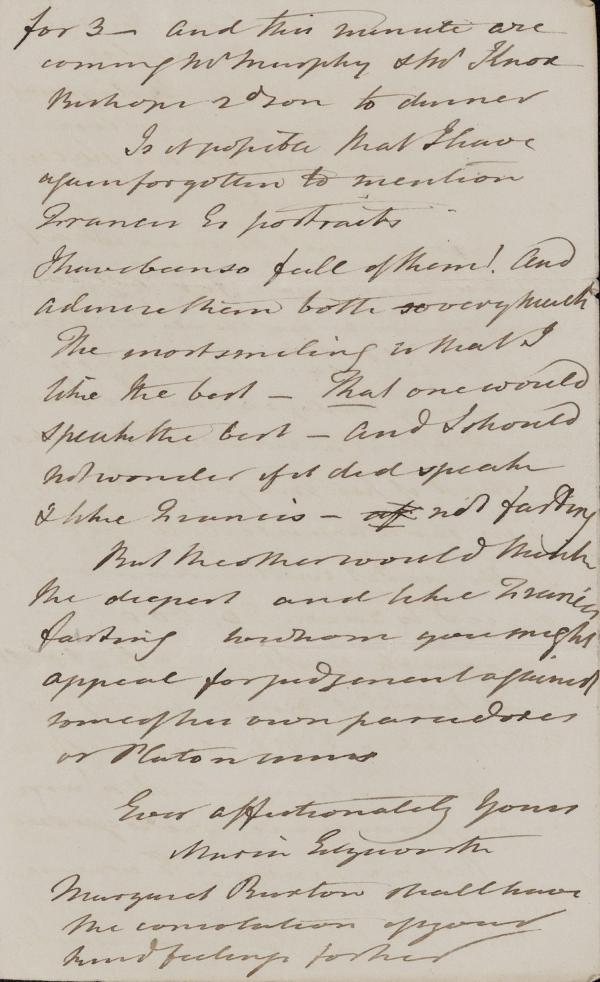 for 3 — and this minute are
coming Mr Murphy & Mr Knox
Bishops 2d son to dinner
Is it possible that I have
again forgotten to mention
Francis Es portraits
I have been so full of them! And
admire them both so very much
The most smiling is that I
like the best — That one would
speak the best — and I should
not wonder if it did speak
& like Francis — not fasting
But the other would think
the deepest and like Francis
fasting to whom you might
appeal for judgement against
some of his own paradoxes
or Platonisms
Ever affectionately yours
Maria Edgeworth
Margaret Ruxton shall have
the consolation of your
kind feelings for her